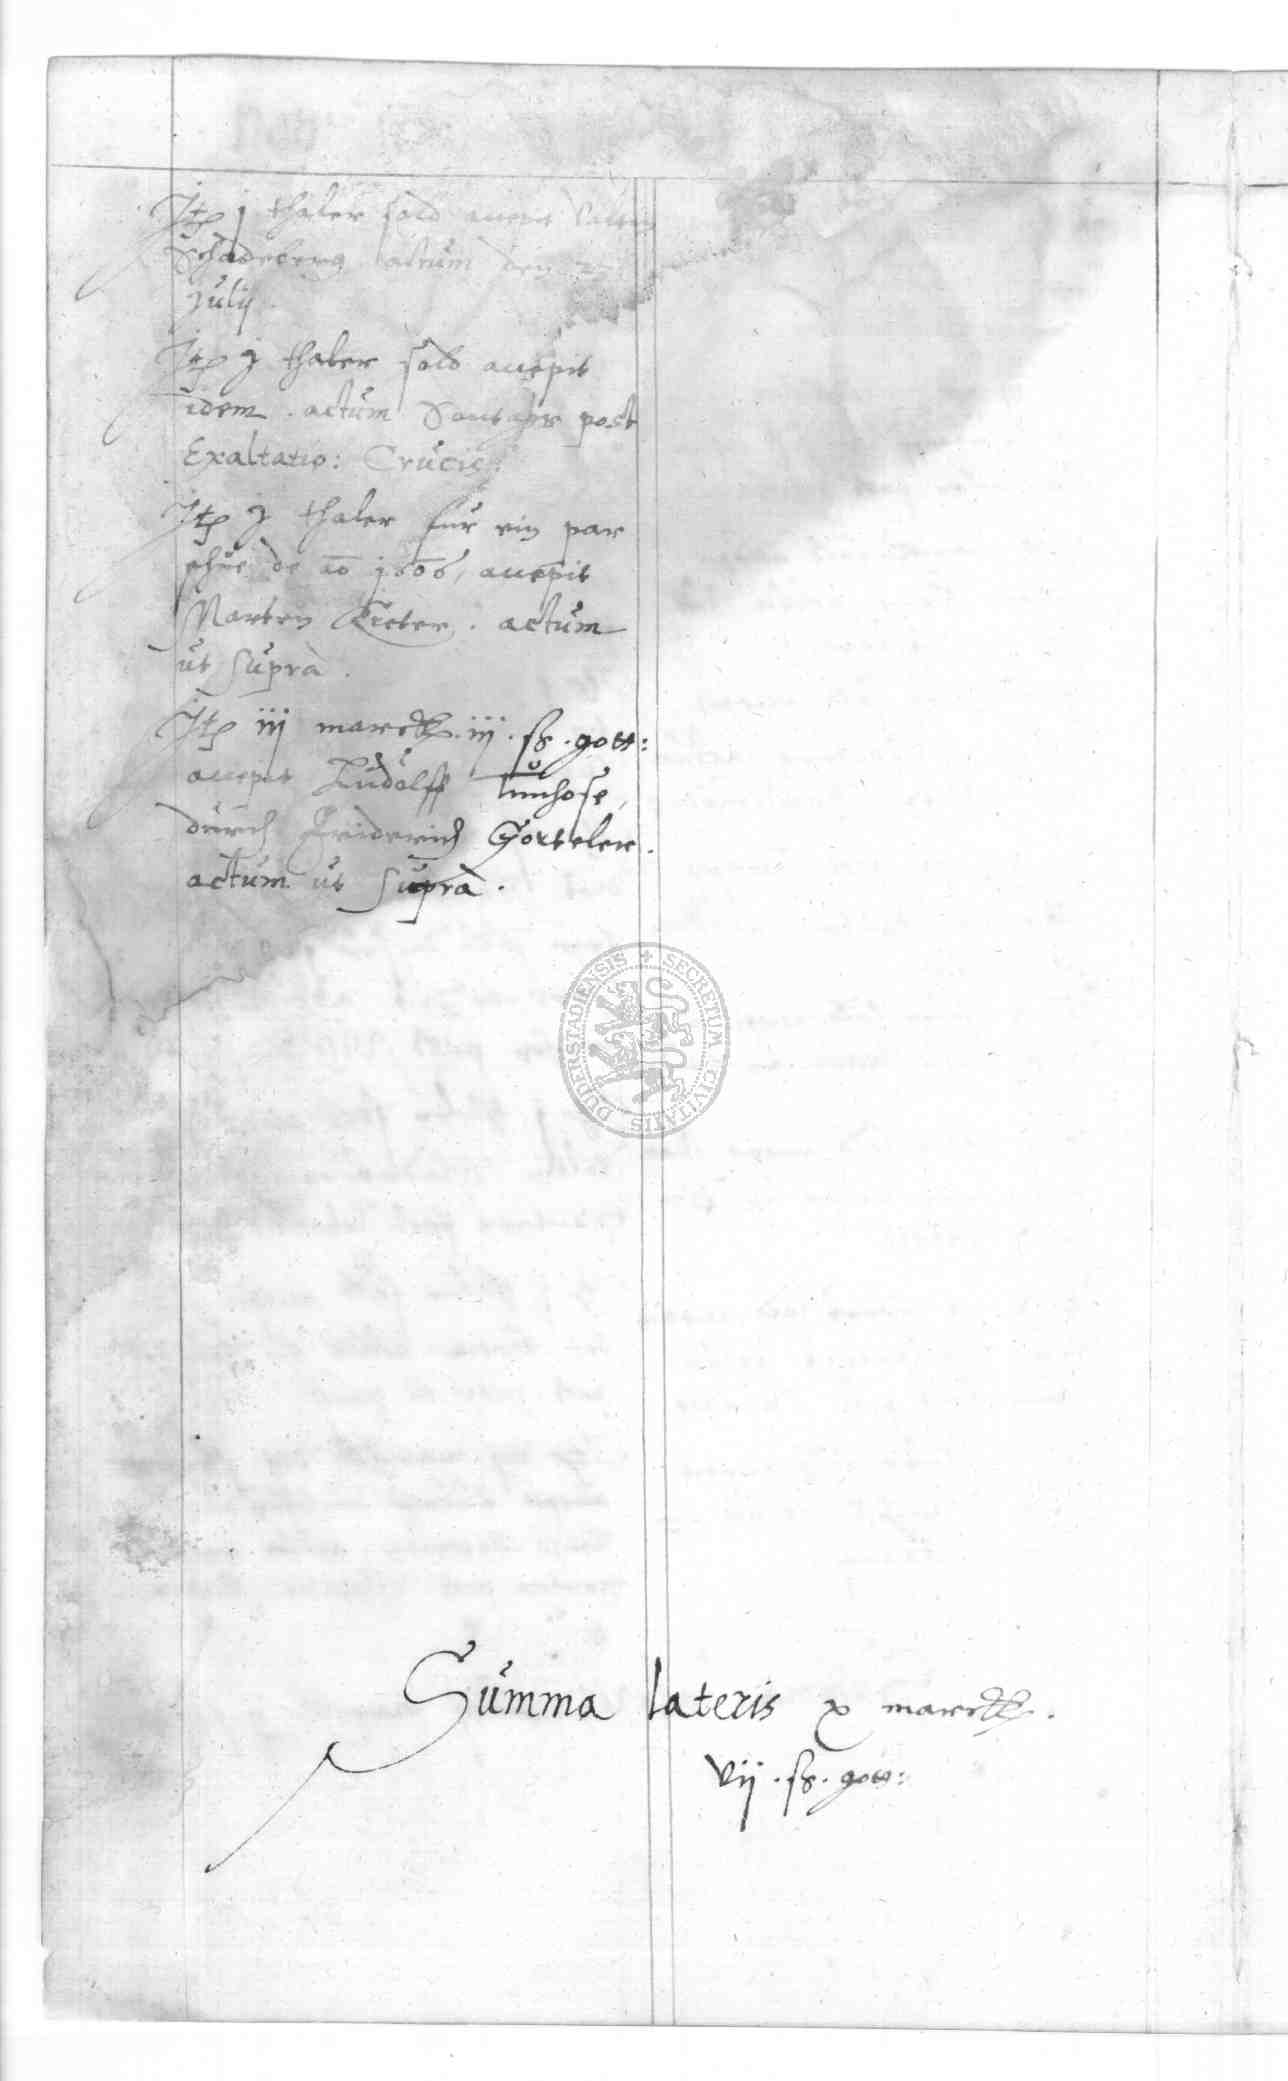 Jtem j thaler sold accepit
Schadeberg actum den
Julij
Jtem j thaler sold accepit
idem. actum Sontags post
Exaltatio: Crucis.
Jtem j thaler für ein par
schue de ao 1606, accepit
Marten actum
ut suprà.
Jtem iij marck. iij. ß. gott:
accepit Ludolff
durch Friderich
actum ut suprà.
DUDERSTADIENSIS + SECRETUM CIVITATIS
Summa lateris x marck.
vij. ß. gott: